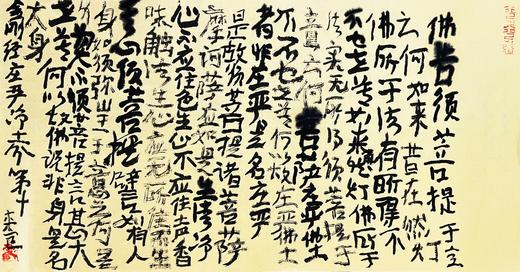 佛告须菩提于意
云何如来昔在然灯
佛所于法有所得不
不也世尊如来然灯佛所于
法实无所得须菩提于
意云何菩萨庄严佛土
不不也世尊何以故庄严佛土
者非庄严是名庄严
是故须菩提诸菩萨
摩诃萨应如是生清净
心不应住色生心不应住声香
味触法生心应无所住而生
其心须菩提譬如有人
身如须弥山王于意云何是身
为大不须菩提言甚大
世尊何以故佛说非身是名
大身
金刚经庄严净土分第十